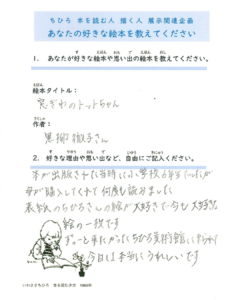 ちひろ 本を読む人 描く人 展示関連企画
あなたの好きな絵本を教えてください
1. あなたが好きな絵本や思い出の絵本を教えてください。
絵本タイトル：
窓ぎわのトットちゃん
作者：
黒柳徹子さん
2. 好きな理由や思い出など、自由にご記入ください。
本が出版された当時に小学校6年生でしたが
母が購入してくれて何度も読みました
表紙のちひろさんの絵が大好きで今も大好きな
絵の一枚です
ちひろ美術館に
今日は本当にうれしいです
いわさきちひろ 本を読む少女